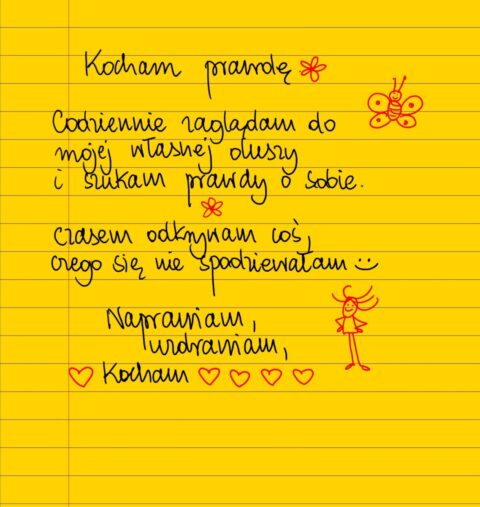 Kocham prawdę
Codziennie zaglądam do
mojej własnej duszy
i szukam prawdy o sobie.
czasem odkrywam coś,
czego się nie spodziewałam :)
Naprawiam,
uzdrawiam,
Kocham